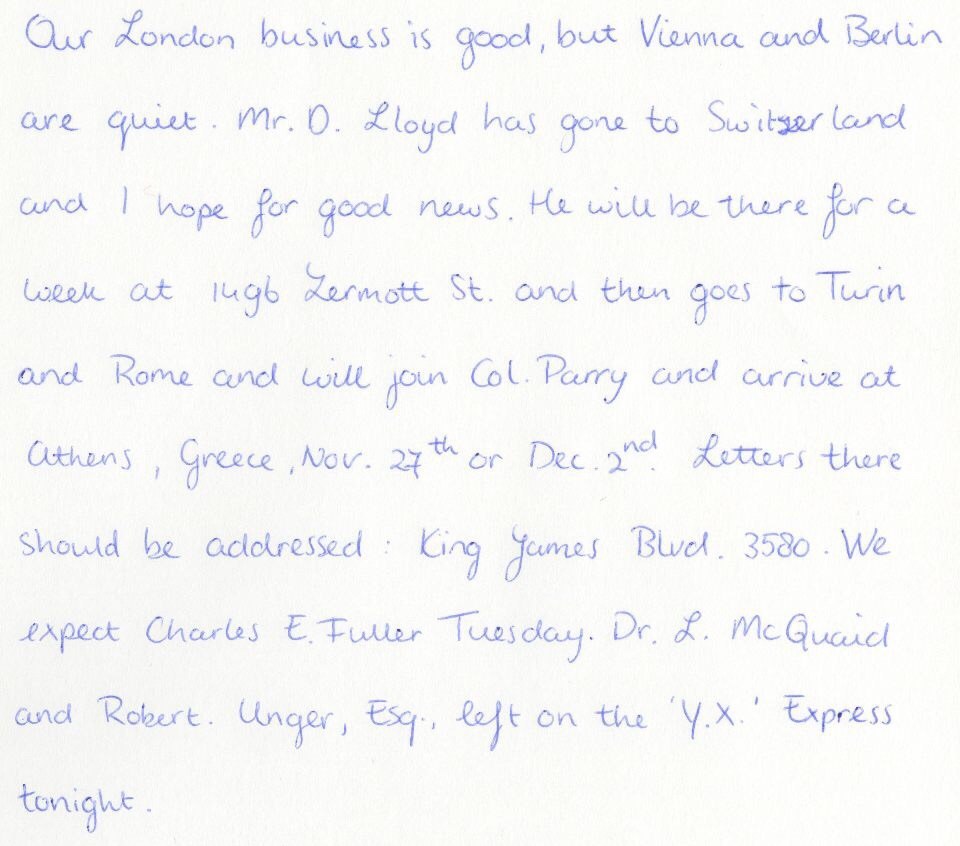 Our London business is good, but Vienna and Berlin
are quiet. Mr. D. Lloyd has gone to Switzerland
and I hope for good news. He will be there for a
week at 1496 Zermott St. and then goes to Turin
and Rome and will join Col. Parry and arrive at
Athens, Greece, Nov. 27th or Dec. 2nd. Letters there
should be addressed: King James Blvd. 3580. We
expect Charles E. Fuller Tuesday. Dr. L. McQuaid
and Robert. Unger, Esq., left on the 'Y.X.' Express
tonight.